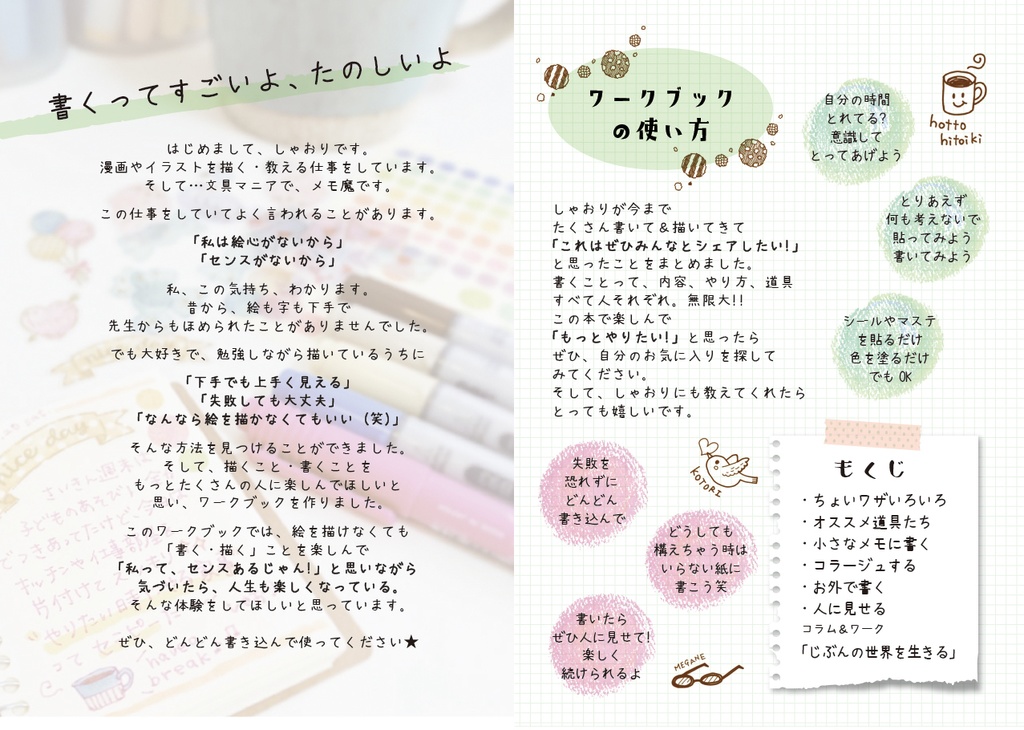 書くってすごいよ、たのしいよ
はじめまして、しゃおりです。
漫画やイラストを描く・教える仕事をしています。
そして…文具マニアで、メモ魔です。
この仕事をしていてよく言われることがあります。
「私は絵心がないから」
「センスがないから」
私、この気持ち、わかります。
昔から、絵も字も下手で
先生からもほめられたことがありませんでした。
でも大好きで、勉強しながら描いているうちに
「下手でも上手く見える」
「失敗しても大丈夫」
「なんなら絵を描かなくてもいい（笑）」
そんな方法を見つけることができました。
そして、描くこと・書くことを
もっとたくさんの人に楽しんでほしいと
思い、ワークブックを作りました。
このワークブックでは、絵を描けなくても
「書く・描く」ことを楽しんで
「私って、センスあるじゃん！」と思いながら
気づいたら、人生も楽しくなっている。
そんな体験をしてほしいと思っています。
ぜひ、どんどん書き込んで使ってください★
ワークブック
の使い方
自分の時間
とれてる？
意識して
とってあげよう
hotto
hitoiki
とりあえず
何も考えないで
貼ってみよう
書いてみよう
しゃおりが今まで
たくさん書いて＆描いてきて
「これはぜひみんなとシェアしたい！」
と思ったことをまとめました。
書くことって、内容、やり方、道具
すべて人それぞれ。無限大！！
この本で楽しんで
「もっとやりたい！」と思ったら
ぜひ、自分のお気に入りを探して
みてください。
そして、しゃおりにも教えてくれたら
とっても嬉しいです。
シールやマステ
を貼るだけ
色を塗るだけ
でもOK
失敗を
恐れずに
どんどん
書き込んで
KOTORI
どうしても
構えちゃう時は
いらない紙に
書こう笑
書いたら
ぜひ人に見せて！
楽しく
続けられるよ
MEGANE
もくじ
・ちょいワザいろいろ
・オススメ道具たち
・小さなメモに書く
・コラージュする
・お外で書く
・人に見せる
コラム＆ワーク
「じぶんの世界を生きる」